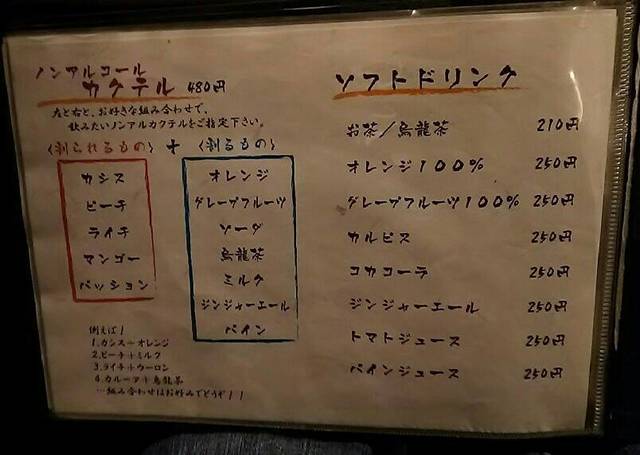 ノンアルコール
カクテル 480円
左と右と、お好きな組み合わせで、
飲みたいノンアルカクテルをご指定下さい。
〈割られるもの〉 + 〈割るもの〉
カシス
ピーチ
ライチ
マンゴー
パッション
オレンジ
グレープフルーツ
ソーダ
烏龍茶
ミルク
ジンジャーエール
パイン
例えば!
1.カシス+オレンジ
2.ピーチ+ミルク
3.ライチ+ウーロン
4.カルーア+烏龍茶
…組み合わせはお好みでどうぞ!!
ソフトドリンク
お茶/烏龍茶 210円
オレンジ100% 250円
グレープフルーツ100% 250円
カルピス 250円
コカコーラ 250円
ジンジャーエール 250円
トマトジュース 250円
パインジュース 250円